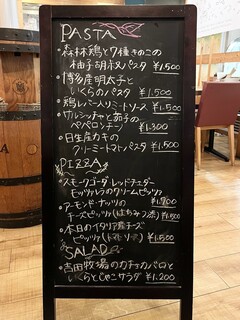 PASTA
・森林鶏と7種きのこの
柚子胡椒パスタ ¥1.500
・博多産明太子と
いくらのパスタ ¥1.500
・鶏レバー入りミートソース ¥1.500
・サルシッチャと茄子の
ペペロンチーノ ¥1.300
・日生産カキの
クリームトマトパスタ ¥1.500
PIZZA
・スモークゴーダ レッドチェダー
モッツァレラのクリームピッツァ
¥1.700
・アーモンド・ナッツの
チーズピッツァ(はちみつ添) ¥1.500
・本日のイタリア産チーズ
ピッツァ(トマトソース) ¥1.500
SALAD
・吉田牧場のカチョカバロと
いくらとじゃこサラダ ¥1.200